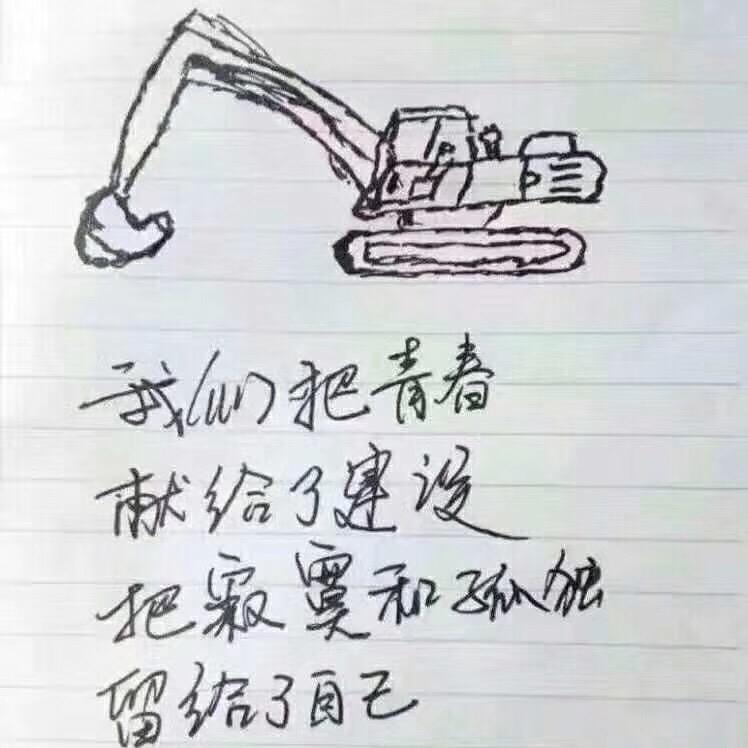 我们把青春
献给了建设
把寂寞和孤独
留给了自己